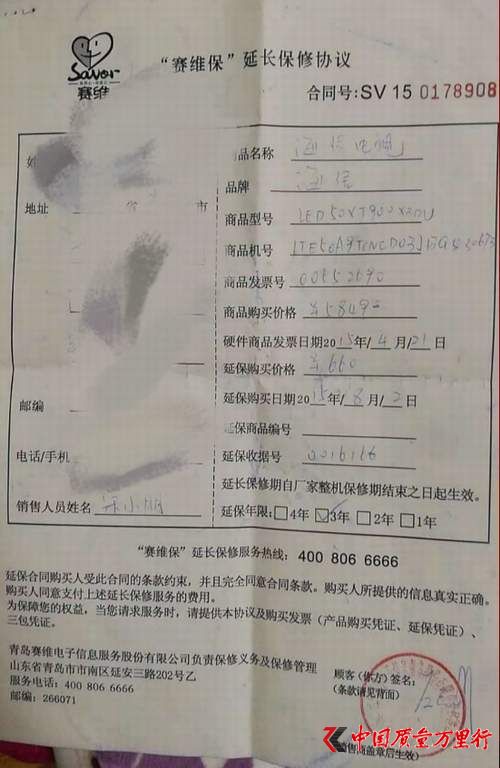 Savor
赛维
“赛维保”延长保修协议
合同号:SV 15 0178908
商品名称 海信电视
地址 省 市
品牌 海信
商品型号 LED50XT900X3DU
商品机号
商品发票号 00552690
商品购买价格 ¥5849
硬件商品发票日期2015年/4月/21日
延保购买价格 ¥660
邮编
延保购买日期2015年/8月/2日
延保商品编号
电话/手机
延保收据号 0016166
延长保修期自厂家整机保修期结束之日起生效。
销售人员姓名 宋小丽
延保年限:□4年☑3年□2年□1年
“赛维保”延长保修服务热线: 400 806 6666
延保合同购买人受此合同的条款约束,并且完全同意合同条款。购买人所提供的信息真实正确。
购买人同意支付上述延长保修服务的费用。
为保障您的权益,当您请求服务时,请提供本协议及购买发票(产品购买凭证、延保凭证)、
三包凭证。
青岛赛维电子信息服务股份有限公司负责保修义务及保修管理
山东省青岛市市南区延安三路202号乙
服务电话:400 806 6666
邮编:266071
顾客(你方)签名:
(条款请见背面)
中国质量万里行
(销售商盖章后生效)